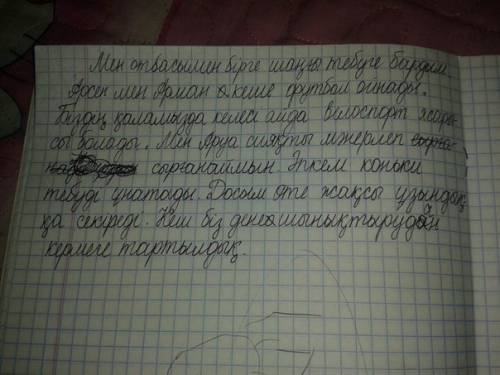 Мен отбасыммен бірге шаңғы тебуге бардым.
Арсен мен Арман кеше футбол ойнады.
Біздің қаламызда келесі айда велоспорт жары-
сы болады. Мен Аруа сияқты мәнерлеп
сырғанаймын Әпкем коньки
тебуді ұнатады. Досым өте жақсы ұзындық
қа секіреді. Кеш біз дене шынықтыруда
кермеге тартылдық.